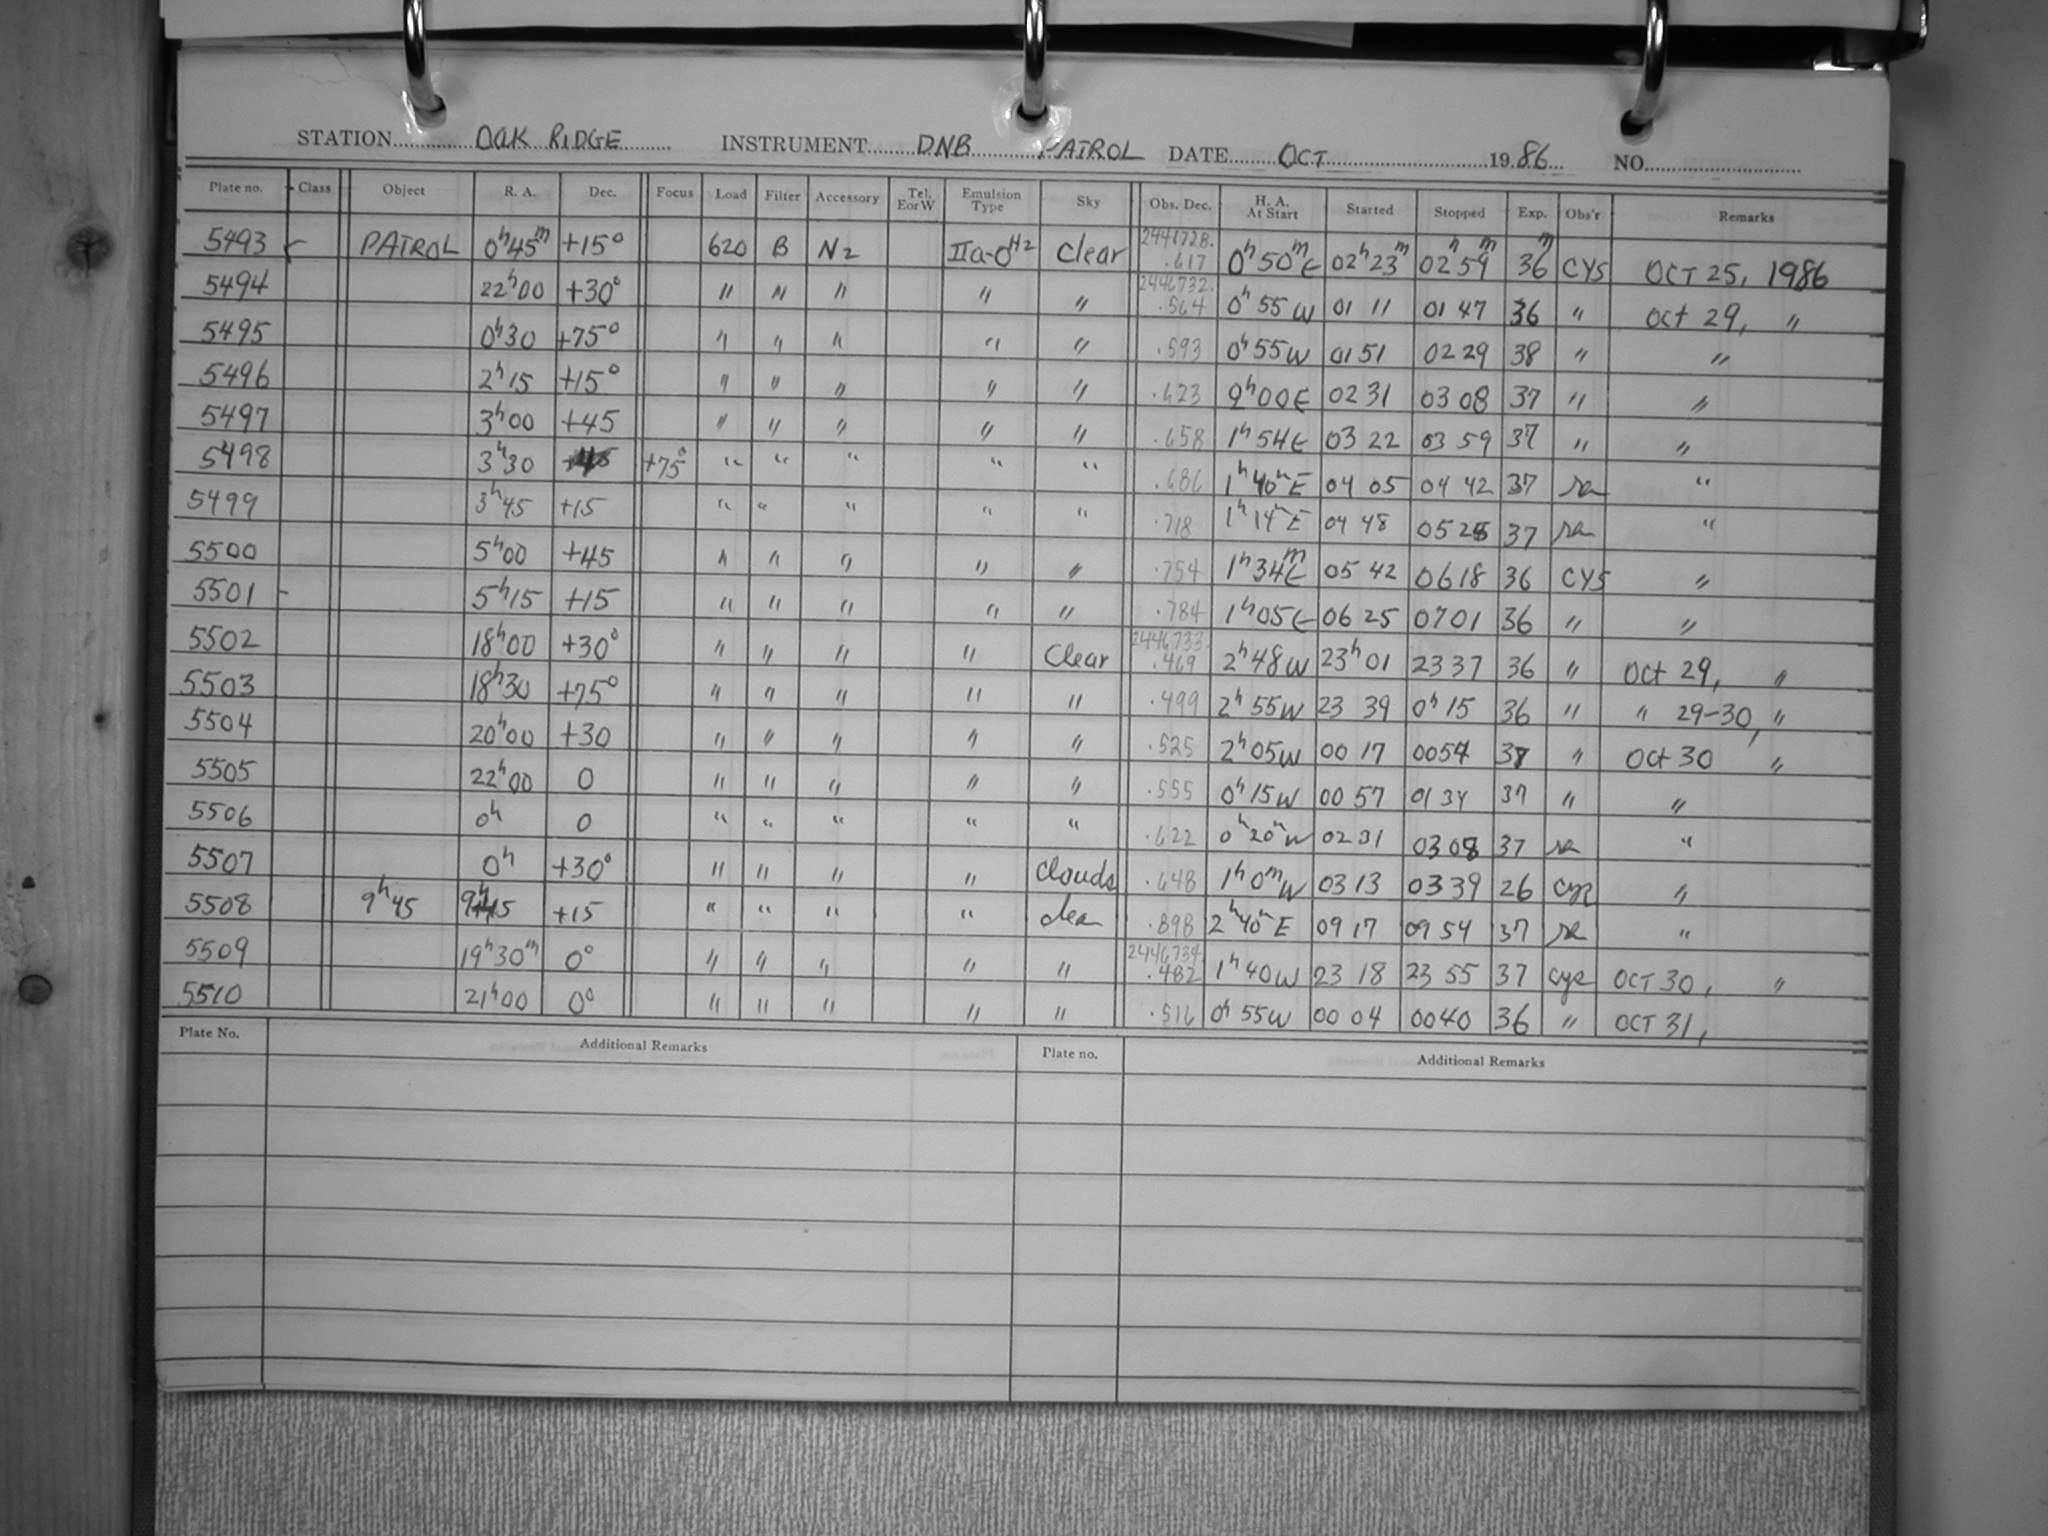 STATION OAK RIDGE INSTRUMENT DNB PATROL DATE OCT 1986 NO.
Plate no. Class Object R. A. Dec. Focus Load Filter Accessory Tel. E or W Emulsion Type Sky Obs. Dec. H. A. At Start Started Stopped Exp. Obs'r Remarks
5493 PATROL 0h45m +15° 620 B N2 IIa-O H2 Clear .617 0h50mE 02h23m 02h59m 36m CYS OCT 25, 1986
5494 22h00 +30° " " " " " 2446732. .564 0h55W 01 11 01 47 36 " Oct 29, "
5495 0h30 +75° " " " " " .593 0h55W 01 51 02 29 38 " "
5496 2h15 +15° " " " " " .623 2h00E 02 31 03 08 37 " "
5497 3h00 +45 " " " " " .658 1h54E 03 22 03 59 37 " "
5498 3h30 +75° " " " " " .686 1h40mE 04 05 04 42 37 "
5499 3h45 +15 " " " " " .718 1h14mE 04 48 05 25 37 "
5500 5h00 +45 " " " " " .754 1h34mE 05 42 06 18 36 CYS "
5501 5h15 +15 " " " " " .784 1h05E 06 25 07 01 36 " "
5502 18h00 +30° " " " " Clear 2446733. .469 2h48W 23h01 23 37 36 " Oct 29, "
5503 18h30 +75° " " " " " .499 2h55W 23 39 0h15 36 " " 29-30, "
5504 20h00 +30 " " " " " .525 2h05W 00 17 00 54 37 " Oct 30 "
5505 22h00 0 " " " " " .555 0h15W 00 57 01 34 37 " "
5506 0h 0 " " " " " .622 0h20mW 02 31 03 08 37 "
5507 0h +30° " " " " Clouds .648 1h0mW 03 13 03 39 26 cys "
5508 9h45 9h45 +15 " " " " clear .898 2h40mE 09 17 09 54 37 "
5509 19h30m 0° " " " " " 2446734. .482 1h40W 23 18 23 55 37 cys OCT 30, "
5510 21h00 0° " " " " " .516 0h55W 00 04 00 40 36 " OCT 31,
Plate No. Additional Remarks Plate no. Additional Remarks